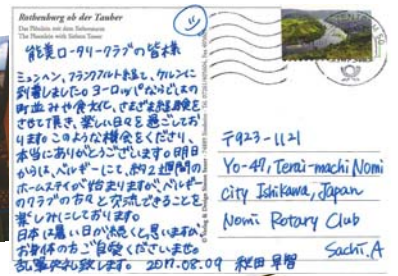 Rothenburg ob der Tauber
Das Plönlein mit dem Siebersturm
The Ploenlein with Siebers Tower
能美ロータリークラブの皆様
ミュンヘン、フランクフルトを経て、ケルンに
到着しました。ヨーロッパならではの
町並みや食文化、さまざまな経験を
させて頂き、楽しい日々を過ごしてお
ります。このような機会をくださり、
本当にありがとうございます。明日
からは、ベルギーにて、約2週間の
ホームステイが始まりますが、ベルギー
のクラブの方々と交流できることを
楽しみにしております。
日本は暑い日が続くと思いますが、
お身体の方ご自愛くださいませ。
乱筆失礼致します。 2017.08.09 秋田 早智
〒923-1121
Yo-47, Terai-machi Nomi
city Ishikawa, Japan
Nomi Rotary Club
Sachi. A